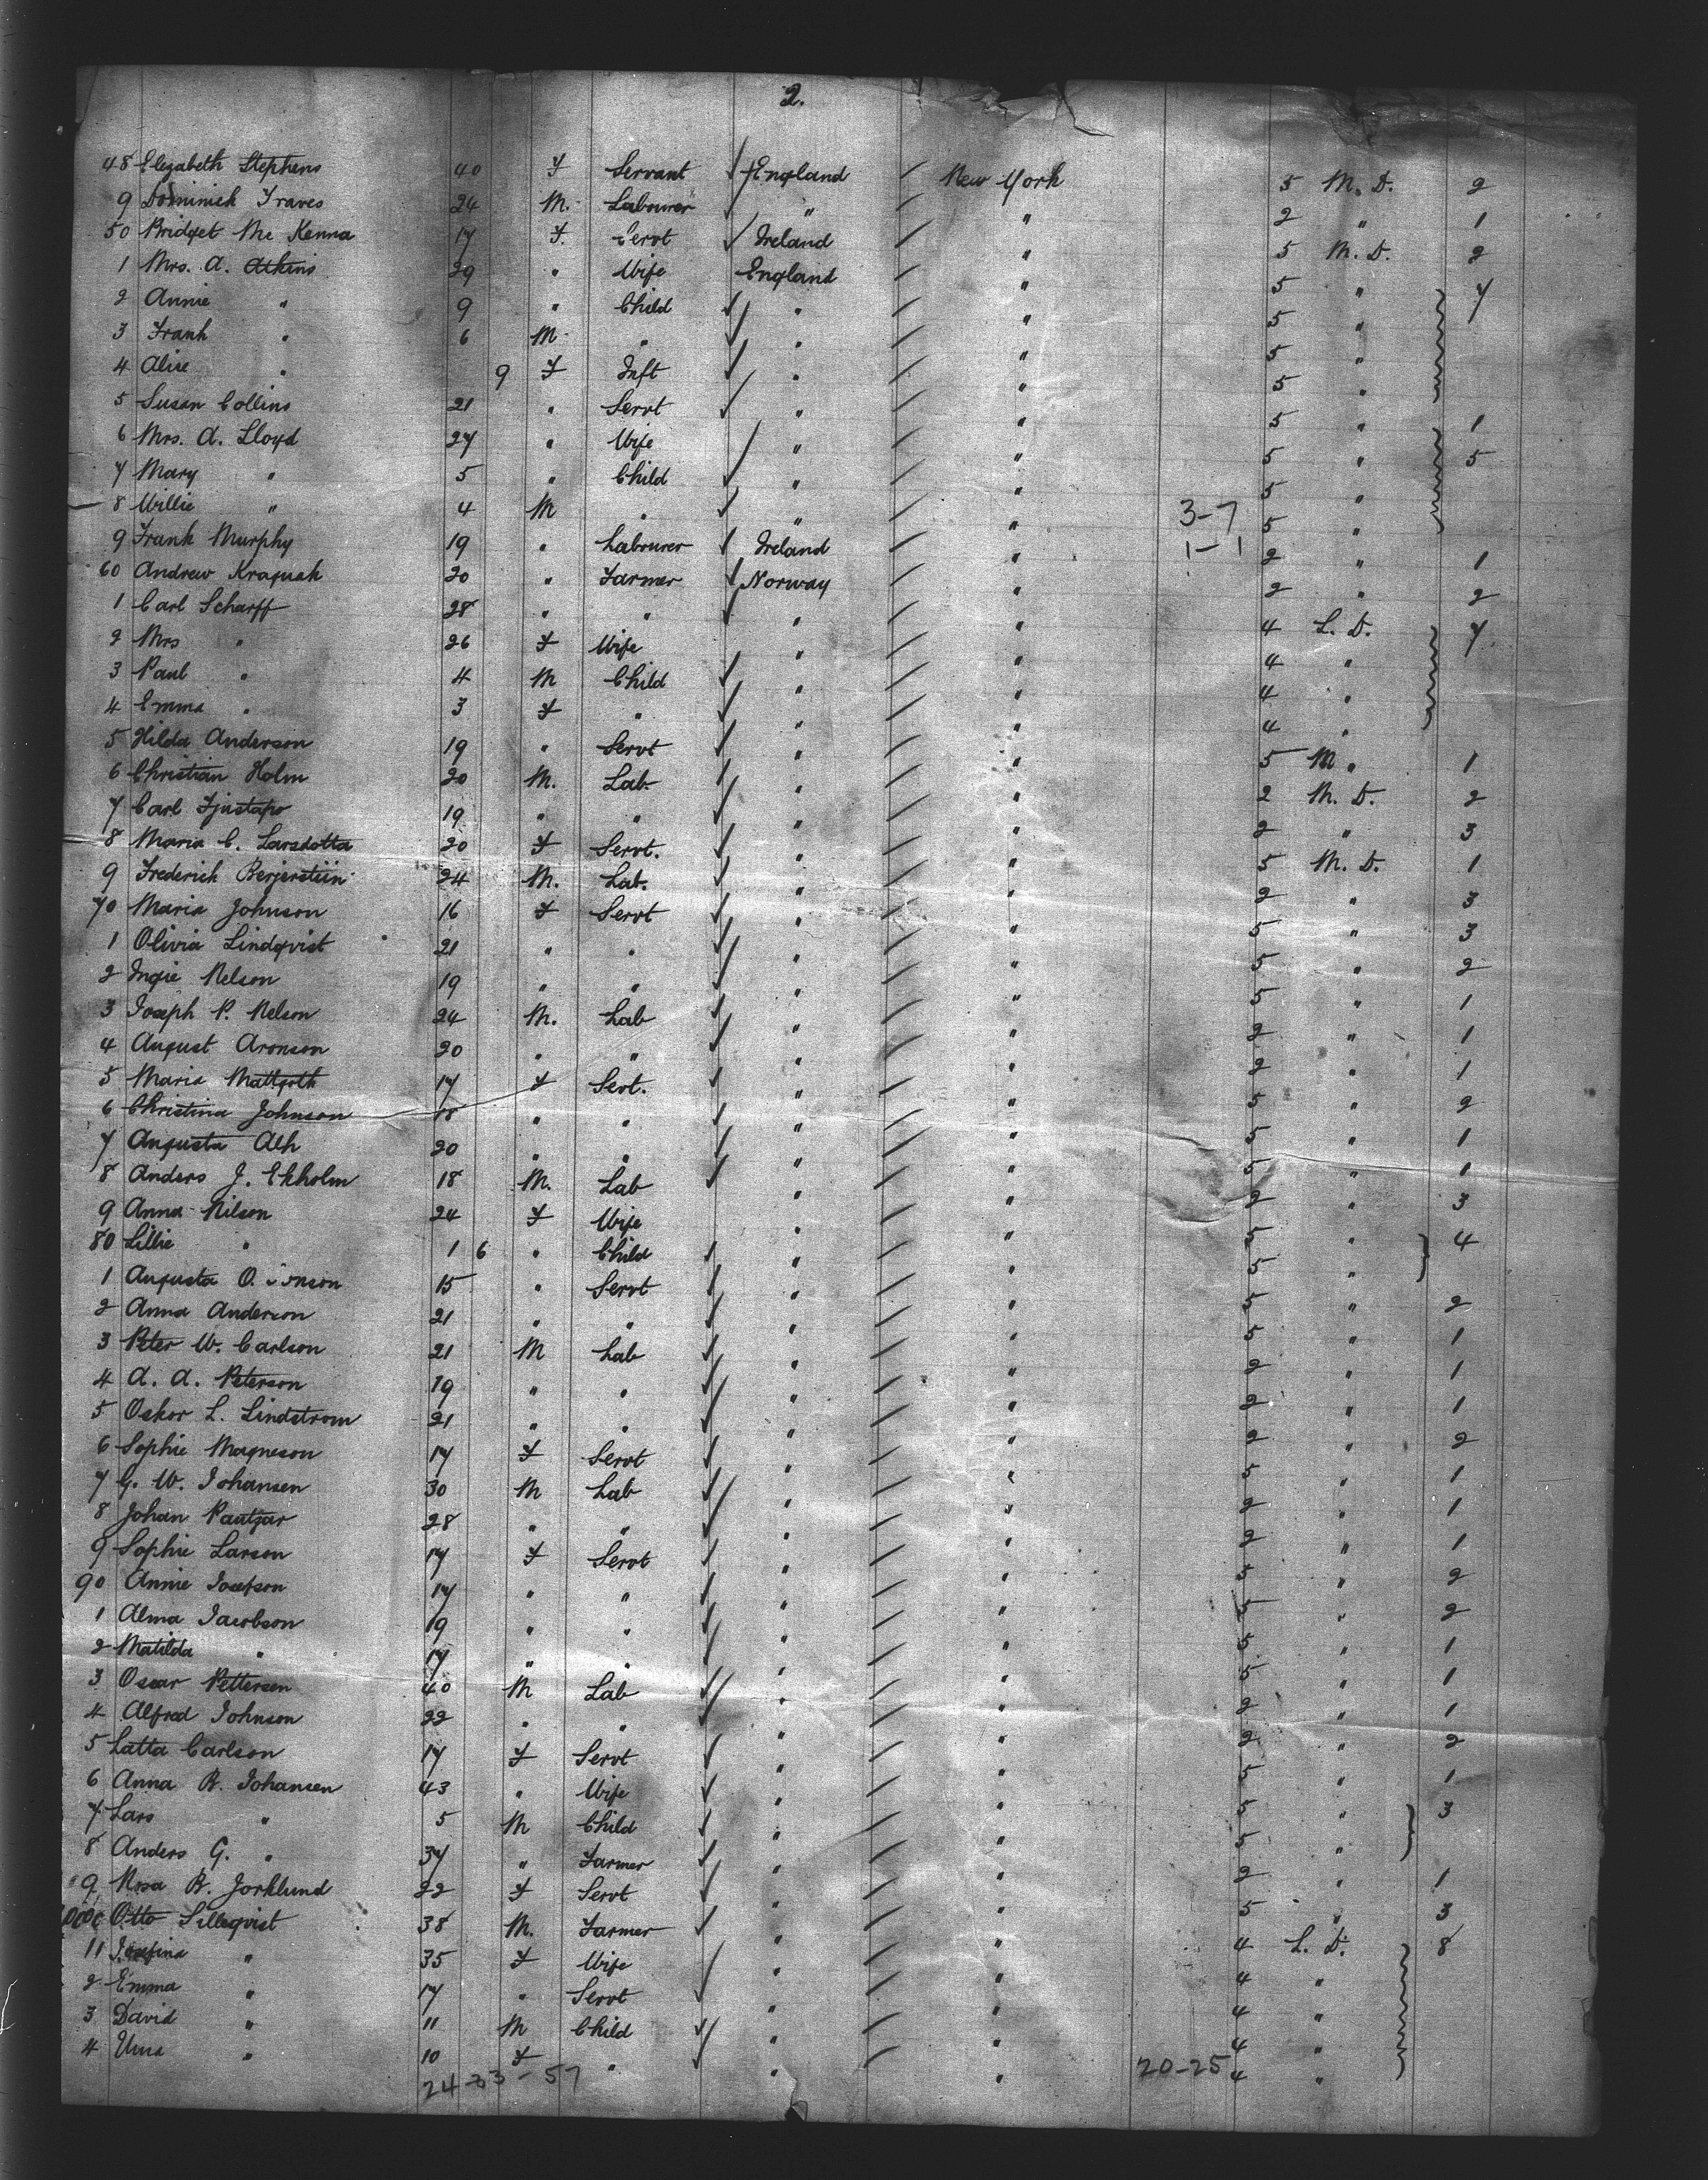 2.
48 Elizabeth Stephens 40 F Servant England New York 5 M. D. 2
9 Dominick Traves 24 M. Labourer " " 2 " 1
50 Bridget Mc Kenna 17 F. Servt Ireland " 5 M. D. 2
1 Mrs. A. Atkins 29 " Wife England " 5 " 7
2 Annie " 9 " Child " " 5 "
3 Frank " 6 M " " " 5 "
4 Alice " 9 F Inft " " 5 "
5 Susan Collins 21 " Servt " " 5 " 1
6 Mrs. A. Lloyd 27 " Wife " " 5 " 5
7 Mary " 5 " Child " " 5 "
8 Willie " 4 M " " " 3-7 5 "
9 Frank Murphy 19 " Labourer Ireland " 1-1 2 " 1
60 Andrew 20 " Farmer Norway " 2 " 2
1 Carl Scharff 28 " " " " 4 L. D. 7
2 Mrs " 26 F Wife " " 4 "
3 Paul " 4 M Child " " 4 "
4 Emma " 3 F " " " 4 "
5 Hilda Anderson 19 " Servt " " 5 M " 1
6 Christian Holm 20 M. Lab. " " 2 M. D. 2
7 Carl 19 " " " " 2 " 3
8 Maria C. Larsdotta 20 F Servt. " " 5 M. D. 1
9 Frederich 24 M. Lab. " " 2 " 3
70 Maria Johnson 16 F Servt " " 5 " 3
1 Olivia Lindqvist 21 " " " " 5 " 2
2 Ingie Nelson 19 " " " " 5 " 1
3 Joseph P. Nelson 24 M. Lab " " 2 " 1
4 August Aronson 20 " " " " 2 " 1
5 Maria 17 F Sert. " " 5 " 2
6 Christina Johnson 18 " " " " 5 " 1
7 Augusta Alh 20 " " " " 5 " 1
8 Anders J. Ekholm 18 M. Lab " " 2 " 3
9 Anna Nilson 24 F Wife " " 5 " 4
80 Lillie " 1 6 " Child " " 5 "
1 Augusta O. 15 " Servt " " 5 " 2
2 Anna Anderson 21 " " " " 5 " 1
3 Peter W. Carlson 21 M Lab " " 2 " 1
4 A. A. Peterson 19 " " " " 2 " 1
5 Oskor L. Lindstrom 21 " " " " 2 " 2
6 Sophie Magneson 17 F Servt " " 5 " 1
7 G. W. Johansen 30 M Lab " " 2 " 1
8 Johan Pautzar 28 " " " " 2 " 1
9 Sophie Larson 17 F Servt " " 5 " 2
90 Annie Josefson 17 " " " " 5 " 2
1 Alma Jacobson 19 " " " " 5 " 1
2 Matilda " 17 " " " " 5 " 1
3 Oscar Pettersen 40 M Lab " " 2 " 1
4 Alfred Johnson 22 " " " " 2 " 2
5 Latta Carlson 17 F Servt " " 5 " 1
6 Anna B. Johansen 43 " Wife " " 5 " 3
7 Lars " 5 M Child " " 5 "
8 Anders G. " 37 " Farmer " " 2 " 1
9 B. Jorklund 22 F Servt " " 5 " 3
Otto Silleqvist 38 M. Farmer " " 4 L. D. 8
11 Josefina " 35 F Wife " " 4 "
2 Emma " 17 " Servt " " 4 "
3 David " 11 M Child " " 4 "
4 " 10 F " " " 4 "
24-33-57 20-25